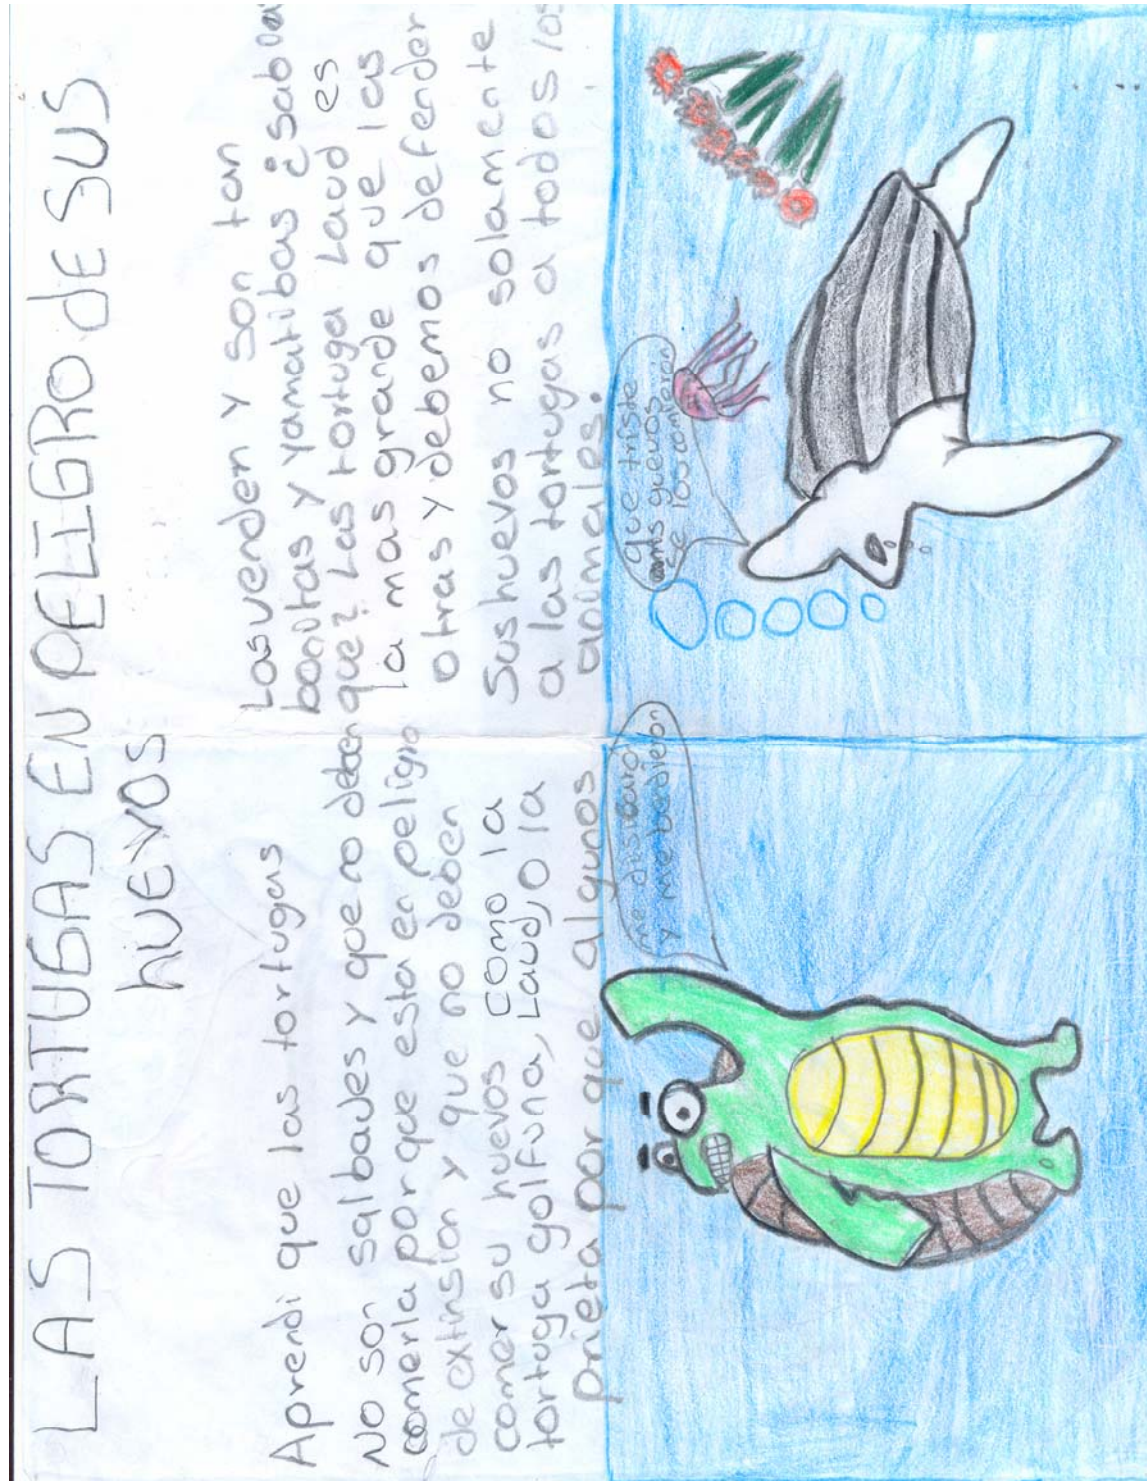 LAS TORTUGAS EN PELIGRO dE SUS
hUEVOS
Aprendi que las tortugas
NO son salbades y que no deben
comerla por que esta en peligro
de extinsion y que no deben
comer su huevos como la
tortuga golfuna, Laud, o la
prieta por que algunos
Los venden y son tan
bonitas y yamatibas ¿sabian
que? Las tortuga Laud es
la mas grande que las
otras y debemos defender
Sus huevos no solamente
a las tortugas a todos los
animales.
me disibaro
y me berdieron
que triste
mis guevos
se los comieron